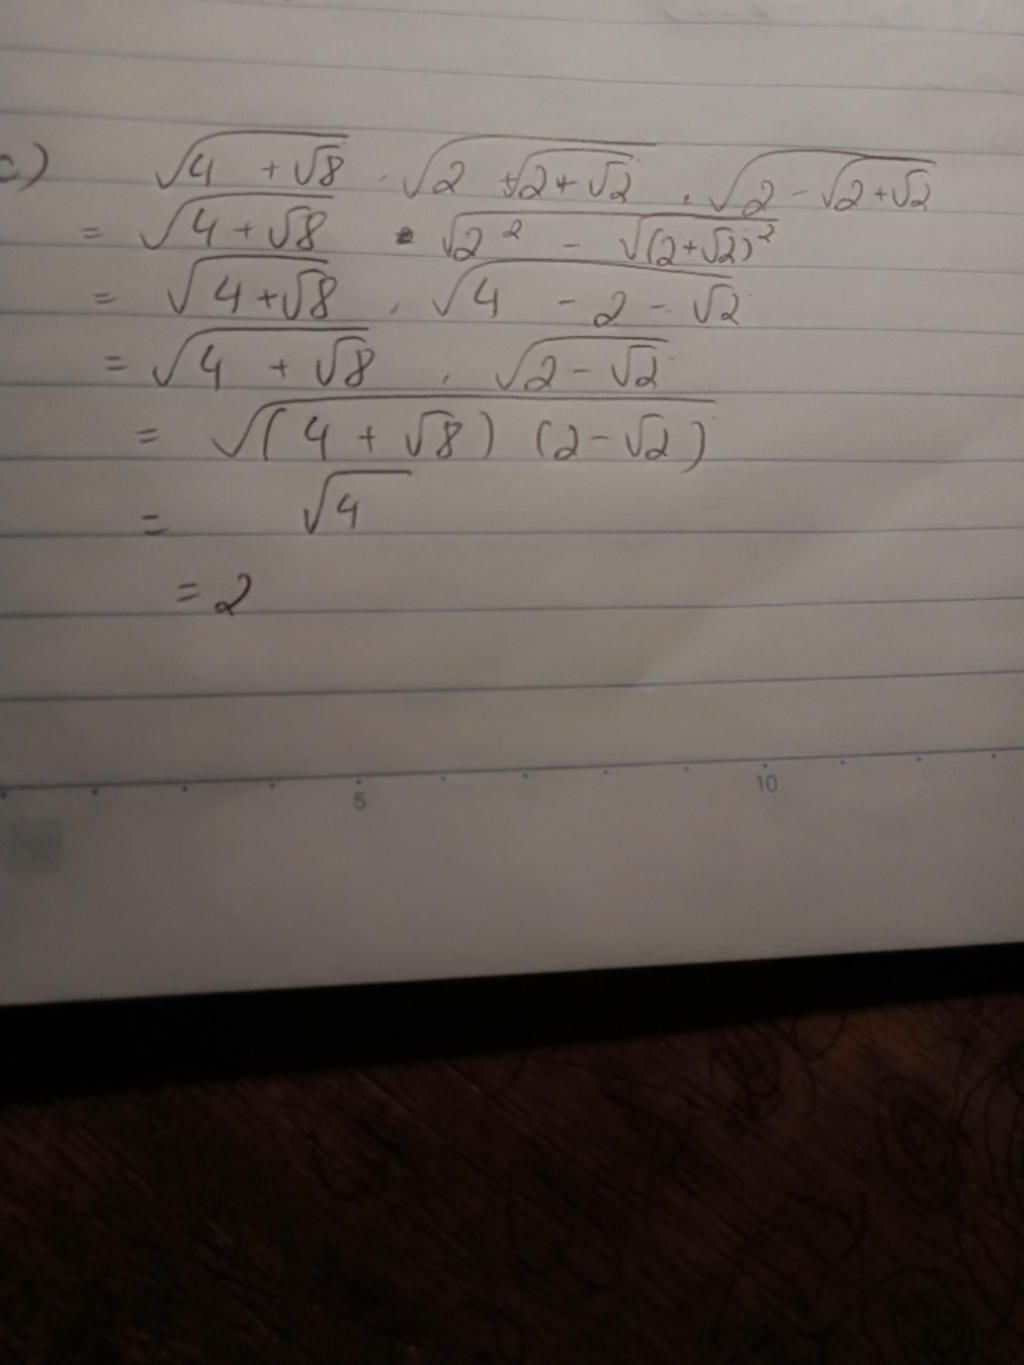 c) √(4 + √8) . √(2 + √(2+√2)) . √(2 - √(2+√2))
= √(4+√8) • √(2² - √((2+√2)²))
= √(4+√8) . √(4 - 2 - √2)
= √(4 + √8) . √(2 - √2)
= √((4 + √8) (2-√2))
= √4
= 2
5 10